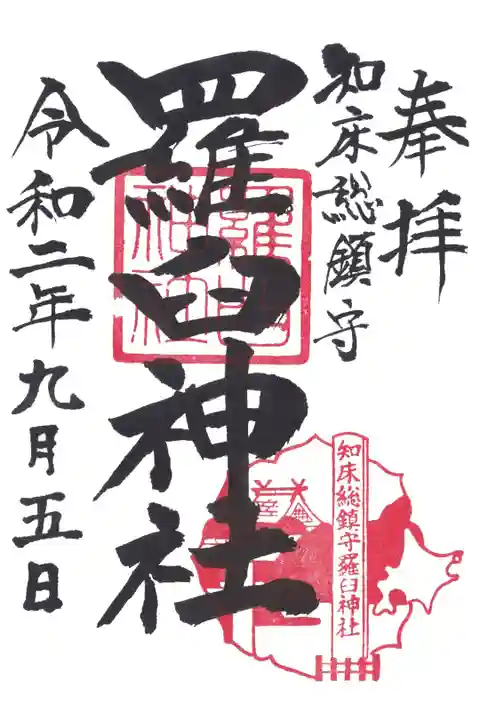 奉拝
知床総鎮守
羅臼神社
羅臼神社
知床総鎮守羅臼神社
令和二年九月五日